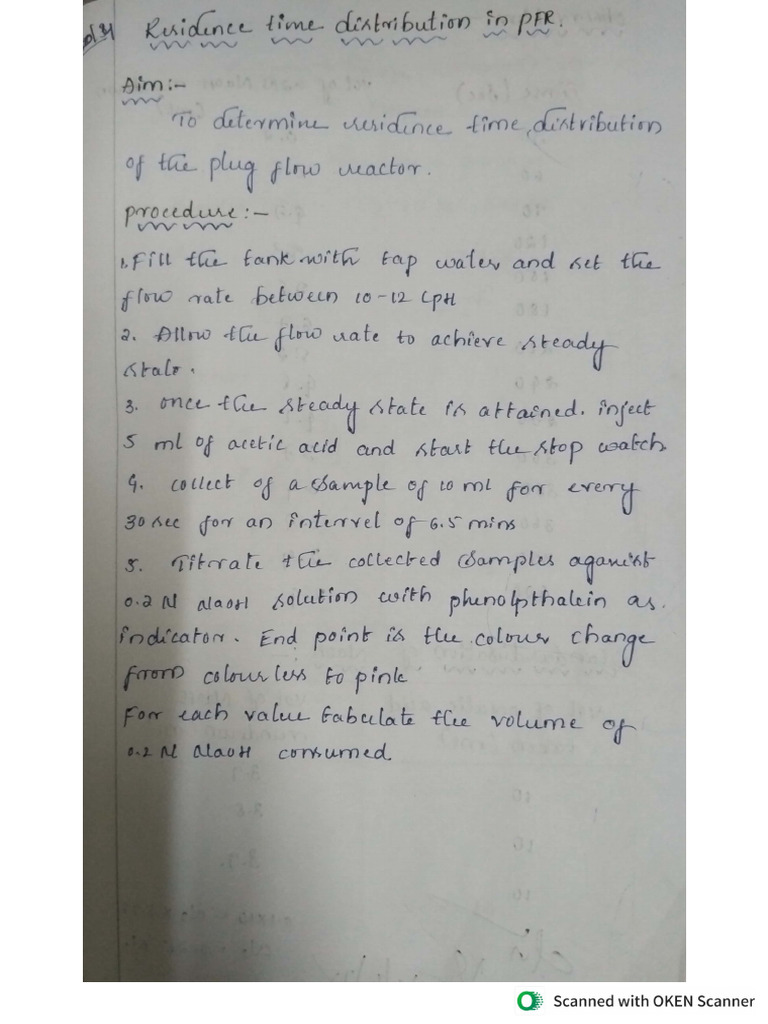 Residence time distribution in PFR.
Aim:-
To determine residence time, distribution
of the plug flow reactor.
procedure:-
1. Fill the tank with tap water and set the
flow rate between 10-12 LPH
2. Allow the flow rate to achieve steady
state.
3. once the steady state is attained. inject
5 ml of acetic acid and start the stop watch
4. collect of a sample of 10 ml for every
30 sec for an intervel of 6.5 mins
5. Titrate the collected samples aganist
0.2 N NaOH solution with phenolpthalein as.
indicator. End point is the colour change
from colourless to pink.
For each value tabulate the volume of
0.2 N NaOH consumed.
Scanned with OKEN Scanner